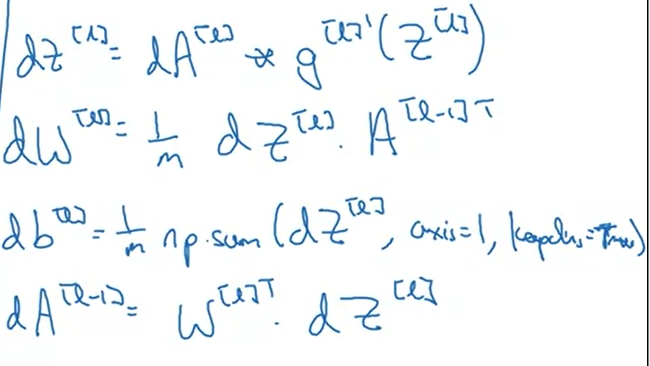 dZ^[l] = dA^[l] * g^[l]'(Z^[l])
dW^[l] = 1/m dZ^[l] . A^[l-1]T
db^[l] = 1/m np.sum(dZ^[l], axis=1, keepdims=True)
dA^[l-1] = W^[l]T . dZ^[l]